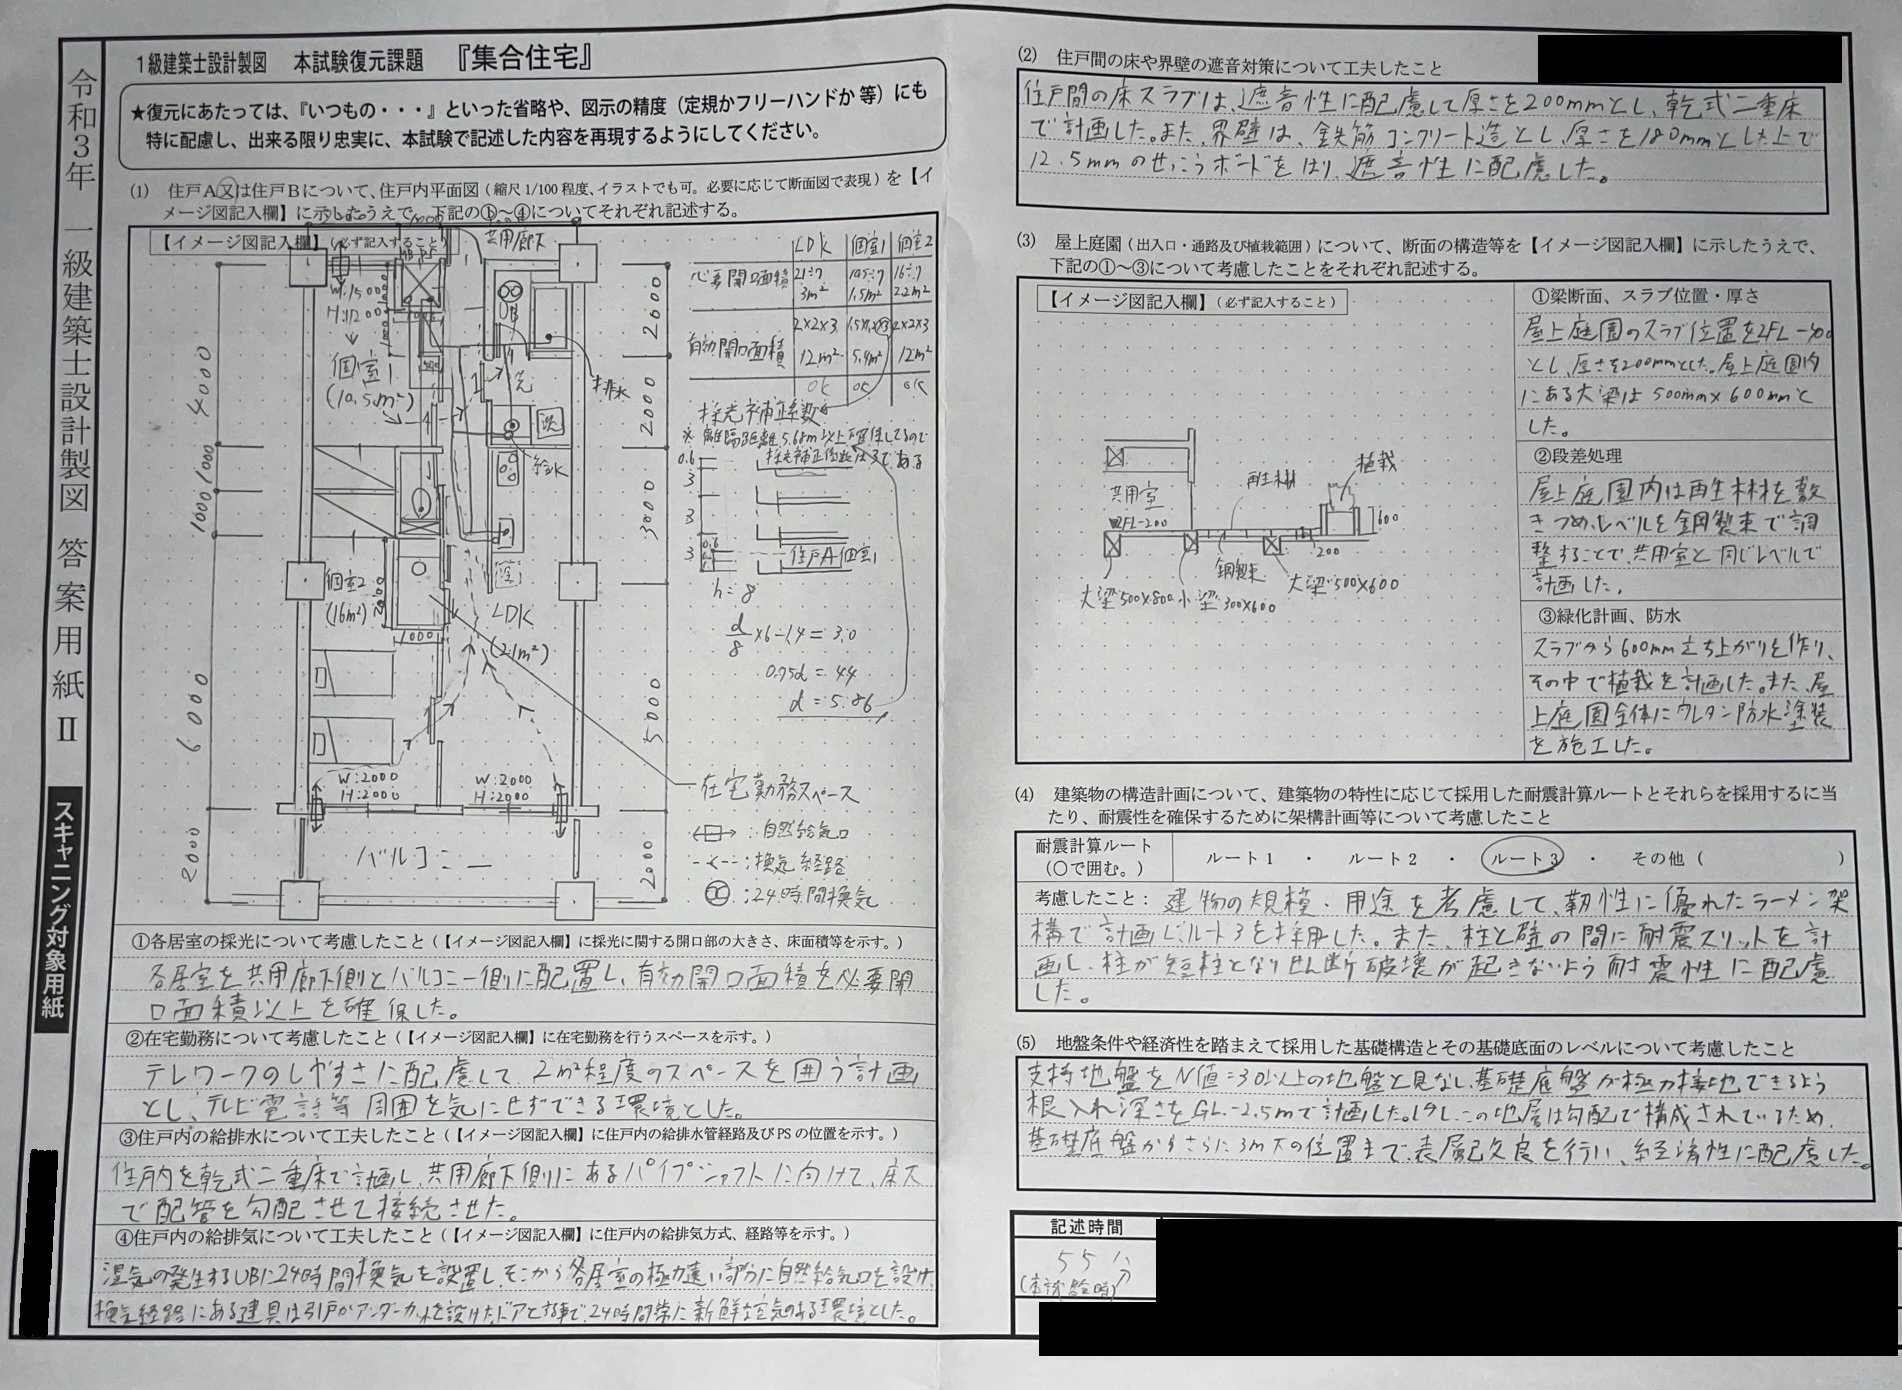 令和3年 一級建築士設計製図 答案用紙Ⅱ
スキャニング対象用紙
1級建築士設計製図 本試験復元課題 『集合住宅』
★復元にあたっては、『いつもの・・・』といった省略や、図示の精度（定規かフリーハンドか 等）にも
特に配慮し、出来る限り忠実に、本試験で記述した内容を再現するようにしてください。
(1) 住戸A又は住戸Bについて、住戸内平面図（縮尺1/100程度、イラストでも可。必要に応じて断面図で表現）を【イ
メージ図記入欄】に示したうえで、下記の①～④についてそれぞれ記述する。
【イメージ図記入欄】（必ず記入すること）
共用廊下
W:1500
H:1200
個室1
(10.5m²)
4000
1000
1000
6000
2000
2000
2000
3000
5000
2000
UB
洗
排水
給水
個室2
(16m²)
2000
1000
LDK
(21m²)
W:2000
H:2000
W:2000
H:2000
バルコニー
LDK 個室1 個室2
必要開口面積
21÷7 10.5÷7 16÷7
3m² 1.5m² 2.2m²
有効開口面積
2×2×3 2×2×3
12m² 5.4m² 12m²
OK OK OK
採光補正係数
0.6
3
3
3
住戸A 個室1
h=8
d/8×6-1.4=3.0
0.75d=4.4
d=5.86
在宅勤務スペース
：自然給気口
：換気経路
：24時間換気
①各居室の採光について考慮したこと（【イメージ図記入欄】に採光に関する開口部の大きさ、床面積等を示す。）
各居室を共用廊下側とバルコニー側に配置し、有効開口面積を必要開
口面積以上を確保した。
②在宅勤務について考慮したこと（【イメージ図記入欄】に在宅勤務を行うスペースを示す。）
テレワークのしやすさに配慮して、2m²程度のスペースを囲う計画
とし、テレビ電話等 周囲を気にせずできる環境とした。
③住戸内の給排水について工夫したこと（【イメージ図記入欄】に住戸内の給排水管経路及びPSの位置を示す。）
住戸内を乾式二重床で計画し、共用廊下側にあるパイプシャフトに向けて、床下
で配管を勾配させて接続させた。
④住戸内の給排気について工夫したこと（【イメージ図記入欄】に住戸内の給排気方式、経路等を示す。）
湿気の発生するUBに24時間換気を設置し、そこから各居室の極力遠い部分に自然給気口を設け、
換気経路にある建具は引戸かアンダーカットを設けたドアとする事で、24時間常に新鮮な空気のある環境とした。
(2) 住戸間の床や界壁の遮音対策について工夫したこと
住戸間の床スラブは、遮音性に配慮して厚さを200mmとし、乾式二重床
で計画した。また、界壁は、鉄筋コンクリート造とし、厚さを180mmとした上で
12.5mmのせっこうボードをはり、遮音性に配慮した。
(3) 屋上庭園（出入口・通路及び植栽範囲）について、断面の構造等を【イメージ図記入欄】に示したうえで、
下記の①～③について考慮したことをそれぞれ記述する。
【イメージ図記入欄】（必ず記入すること）
共用室
2FL-200
再生木材
植栽
600
200
鋼製束
大梁500×800
小梁300×600
大梁500×600
①梁断面、スラブ位置・厚さ
屋上庭園のスラブ位置を2FL-
とし、厚さを200mmとした。屋上庭園内
にある大梁は500mm×600mmと
した。
②段差処理
屋上庭園内は再生木材を敷
きつめ、レベルを鋼製束で調
整することで、共用室と同じレベルで
計画した。
③緑化計画、防水
スラブから600mm立ち上がりを作り、
その中で植栽を計画した。また、屋
上庭園全体にウレタン防水塗装
を施工した。
(4) 建築物の構造計画について、建築物の特性に応じて採用した耐震計算ルートとそれらを採用するに当
たり、耐震性を確保するために架構計画等について考慮したこと
耐震計算ルート（〇で囲む。） ルート1 ・ ルート2 ・ ルート3 ・ その他（ ）
考慮したこと： 建物の規模・用途を考慮して、靭性に優れたラーメン架
構で計画し、ルート3を採用した。また、柱と壁の間に耐震スリットを計
画し、柱が短柱となりせん断破壊が起きないよう耐震性に配慮
した。
(5) 地盤条件や経済性を踏まえて採用した基礎構造とその基礎底面のレベルについて考慮したこと
支持地盤をN値=30以上の地盤と見なし、基礎底盤が極力接地できるよう
根入れ深さをGL-2.5mで計画した。但し、この地層は勾配で構成されているため、
基礎底盤からさらに3m下の位置まで、表層改良を行い、経済性に配慮した。
記述時間
55分
(本試験時)